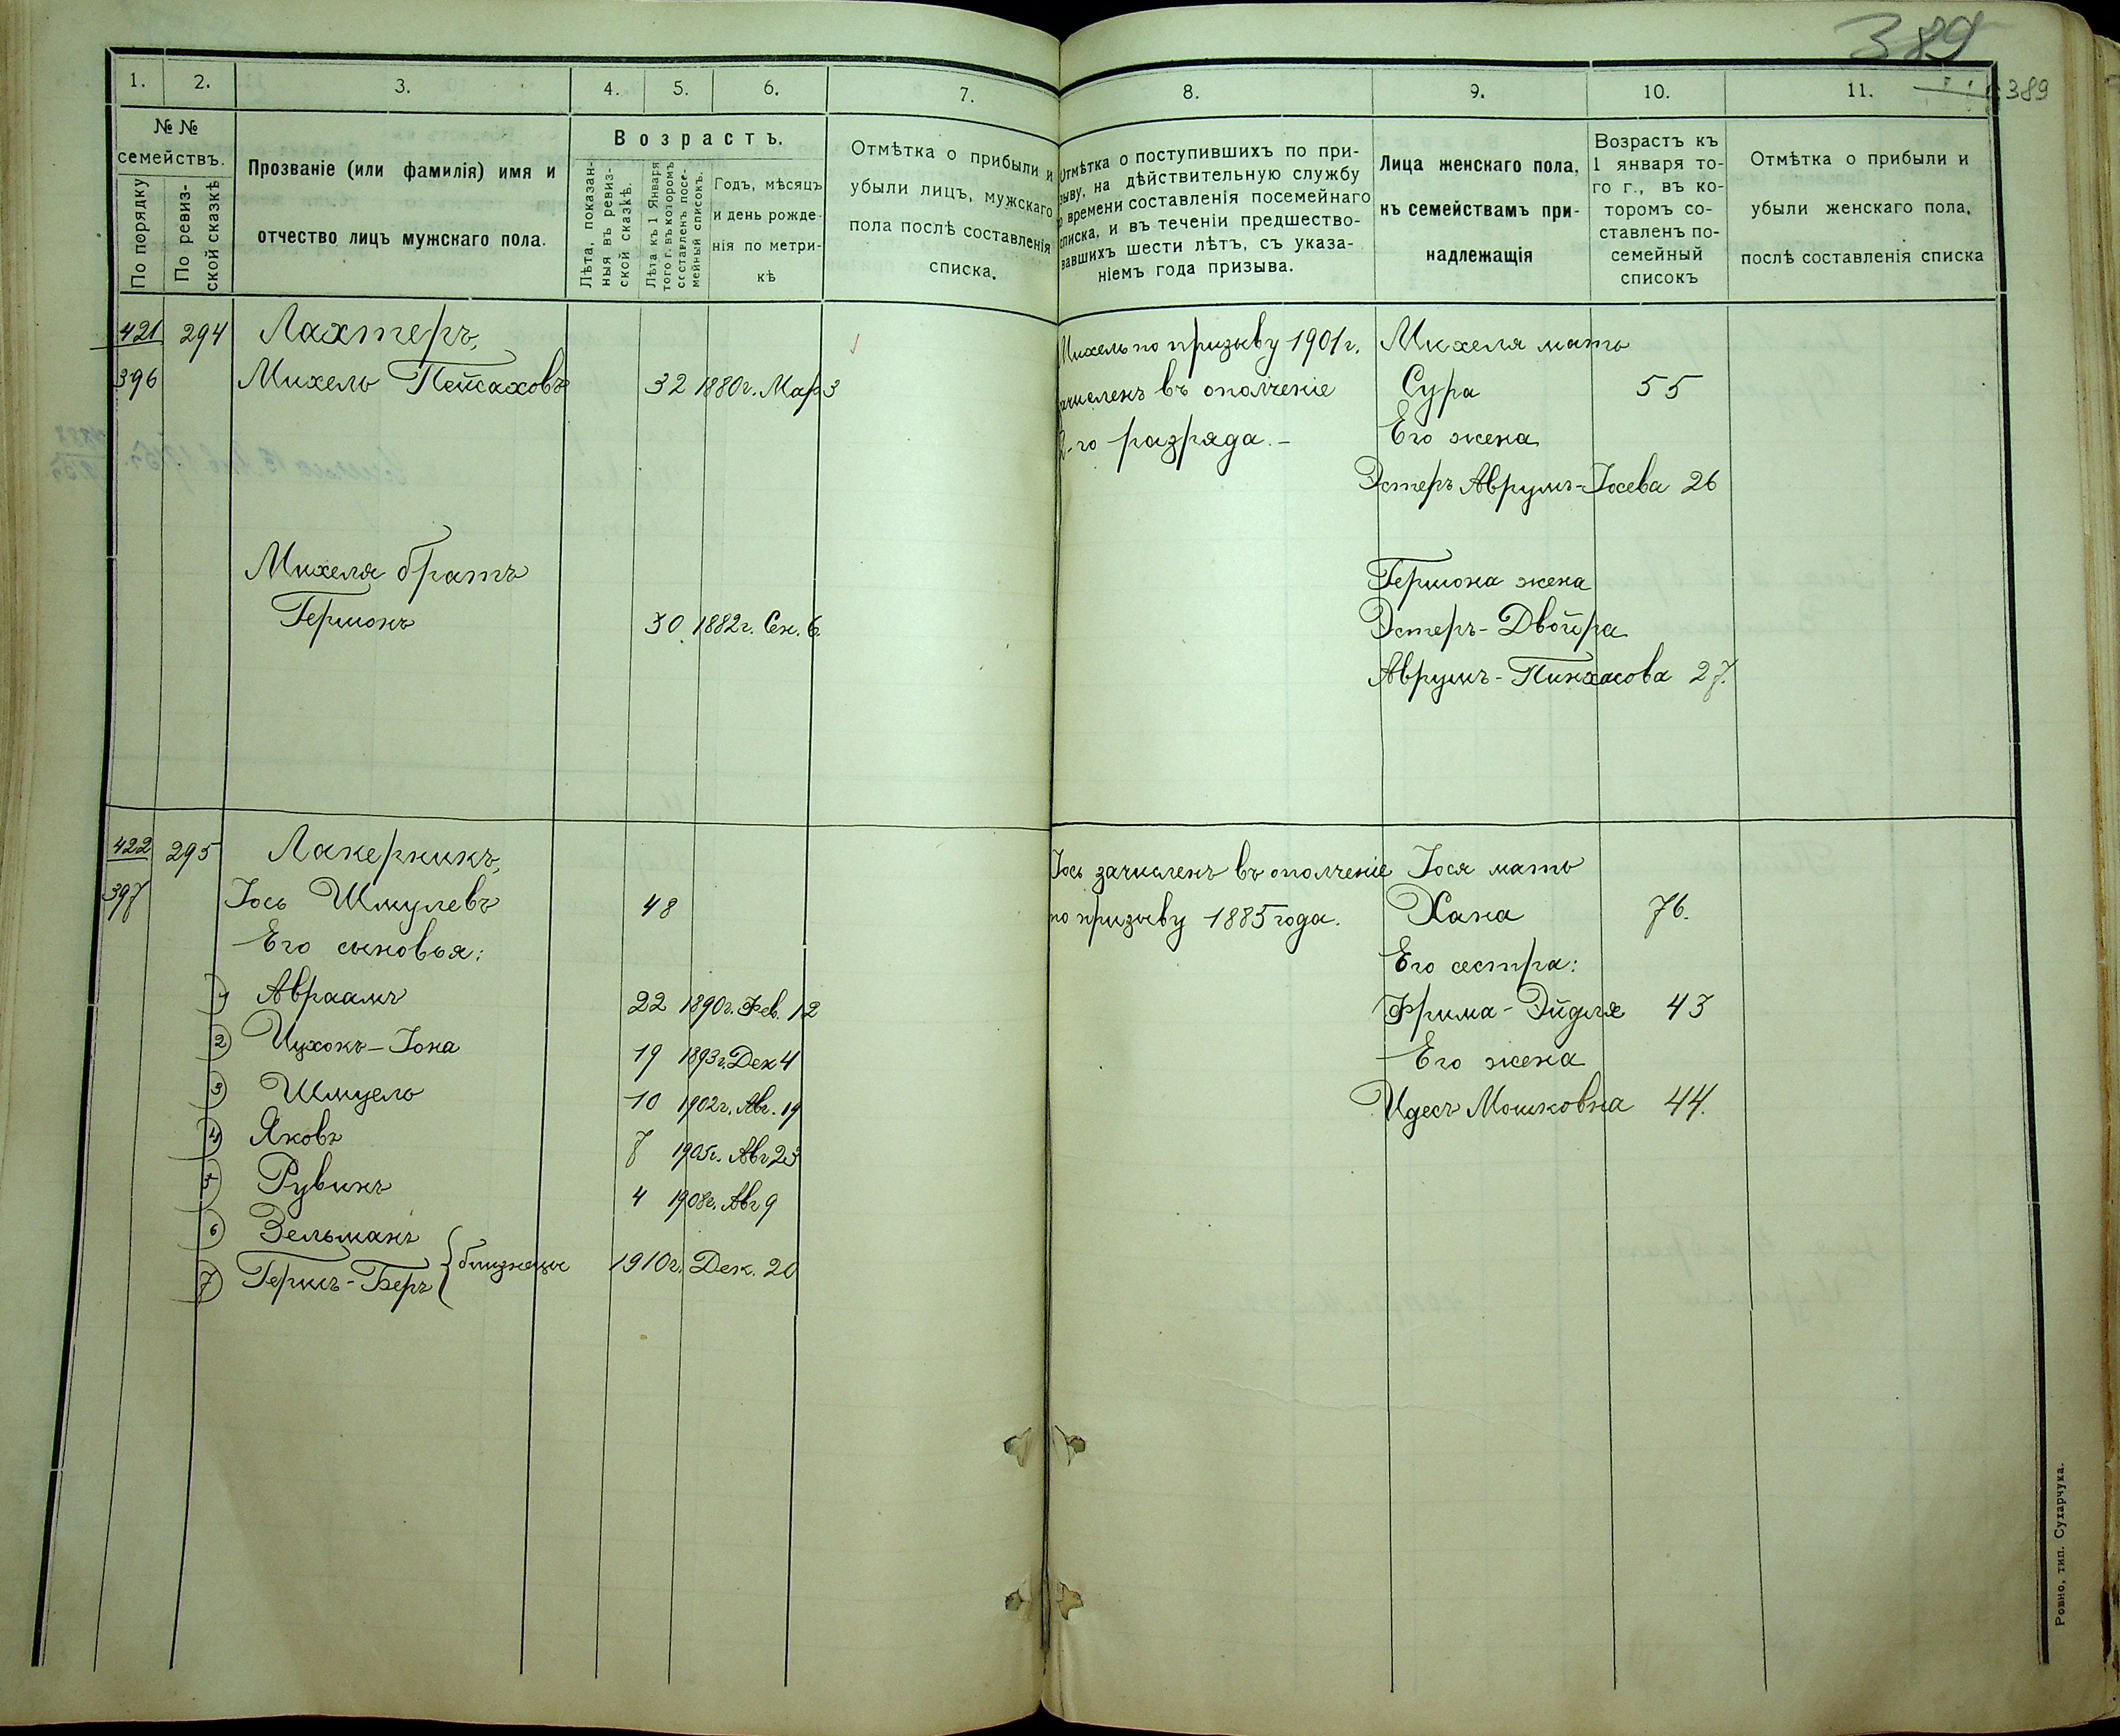 389
389
1. 2. 3. 4. 5. 6. 7.
№ №
семействъ.
По порядку
По ревиз-
ской сказкѣ
Прозваніе (или фамилія) имя и
отчество лицъ мужскаго пола.
Возрастъ.
Лѣта, показан-
ныя въ ревиз-
ской сказкѣ.
Лѣта къ 1 Января
того г. въ которомъ
составленъ посе-
мейный списокъ.
Годъ, мѣсяцъ
и день рожде-
нія по метри-
кѣ
Отмѣтка о прибыли и
убыли лицъ, мужскаго
пола послѣ составленія
списка.
421 294 Лахтеръ,
396 Михель Пейсаховъ 32 1880г. Мар 3
Михеля братъ
Гершонъ 30 1882г. Сен. 6
422 295 Лакерникъ,
397 Іось Шмулевъ 48
Его сыновья:
1 Авраамъ 22 1890г. Фев. 12
2 Ицхокъ-Іона 19 1893г. Дек 4
3 Шмуель 10 1902г. Авг. 19
4 Яковъ 7 1905г. Авг 23
5 Рувинъ 4 1908г. Авг 9
6 Зельманъ
7 Гершъ-Беръ близнецы 1910г. Дек. 20
8. 9. 10. 11.
Отмѣтка о поступившихъ по при-
зыву, на дѣйствительную службу
о времени составленія посемейнаго
списка, и въ теченіи предшество-
вавшихъ шести лѣтъ, съ указа-
ніемъ года призыва.
Лица женскаго пола,
къ семействамъ при-
надлежащія
Возрастъ къ
1 января то-
го г., въ ко-
торомъ со-
ставленъ по-
семейный
списокъ
Отмѣтка о прибыли и
убыли женскаго пола,
послѣ составленія списка
Михель по призыву 1901г. Михеля мать
зачисленъ въ ополченіе Сура 55
2-го разряда.- Его жена
Эстеръ Аврумъ-Іосева 26
Гершона жена
Эстеръ-Двойра
Аврумъ-Пинхасова 27.
Іось зачисленъ въ ополченіе Іося мать
по призыву 1885 года. Хана 76.
Его сестра:
Фрима-Эйдля 43
Его жена
Идесъ Мошковна 44.
Ровно, тип. Сухарчука.